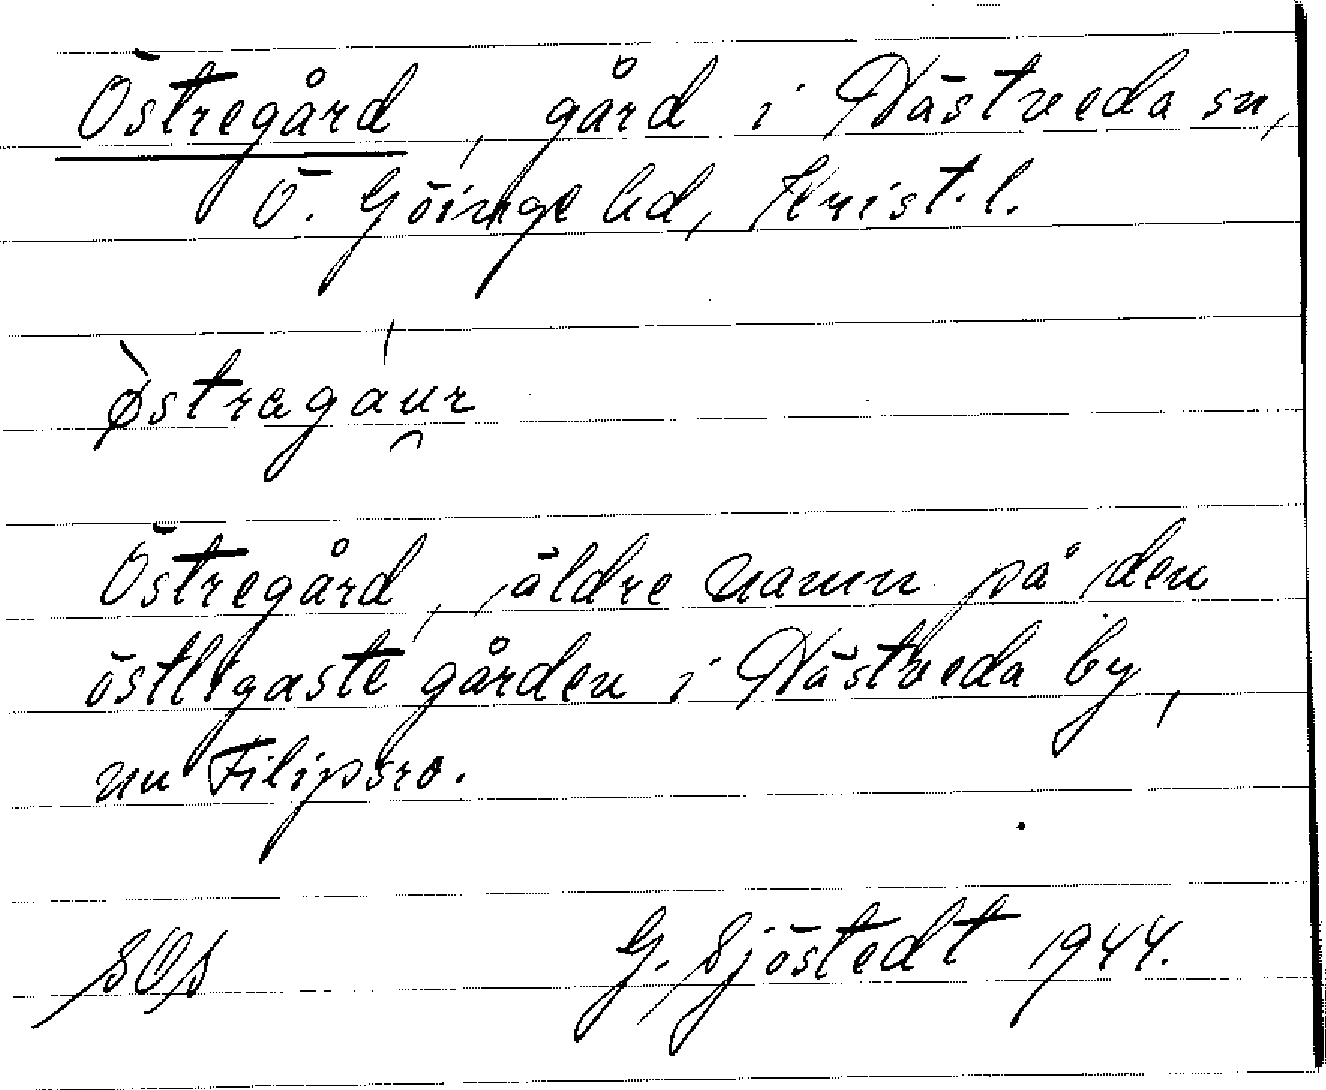 Östregård, gård i Nästveda sn,
Ö. Göinge hd, Krist. l.
østragáu̯r
Östregård, äldre namn på den
östligaste gården i Nästveda by,
nu Filipsro.
SOS G. Sjöstedt 1944.